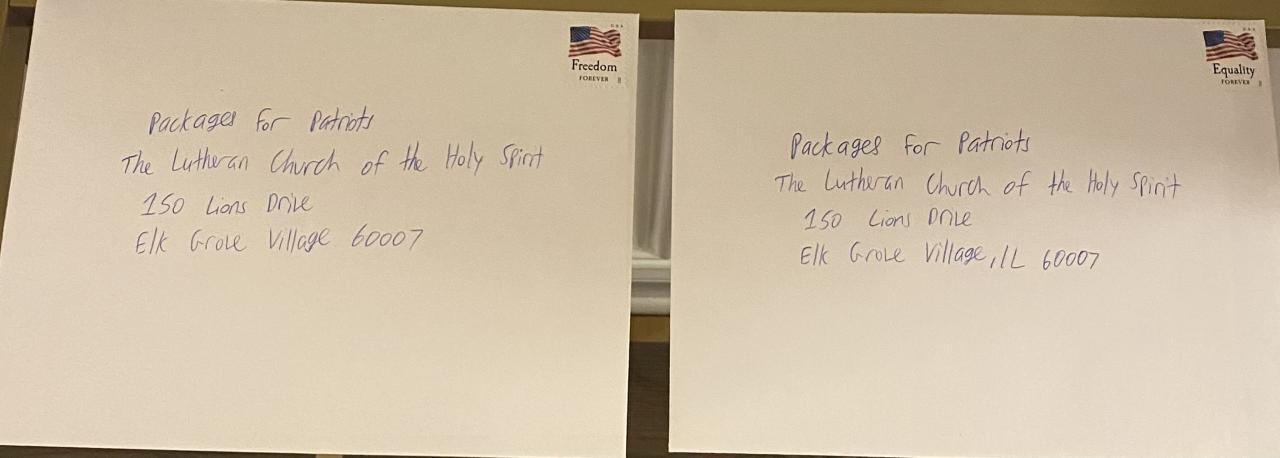 USA
Freedom
FOREVER
Packages for Patriots
The Lutheran Church of the Holy Spirit
150 Lions Drive
Elk Grove Village 60007
USA
Equality
FOREVER
Packages for Patriots
The Lutheran Church of the Holy Spirit
150 Lions Drive
Elk Grove Village, IL 60007